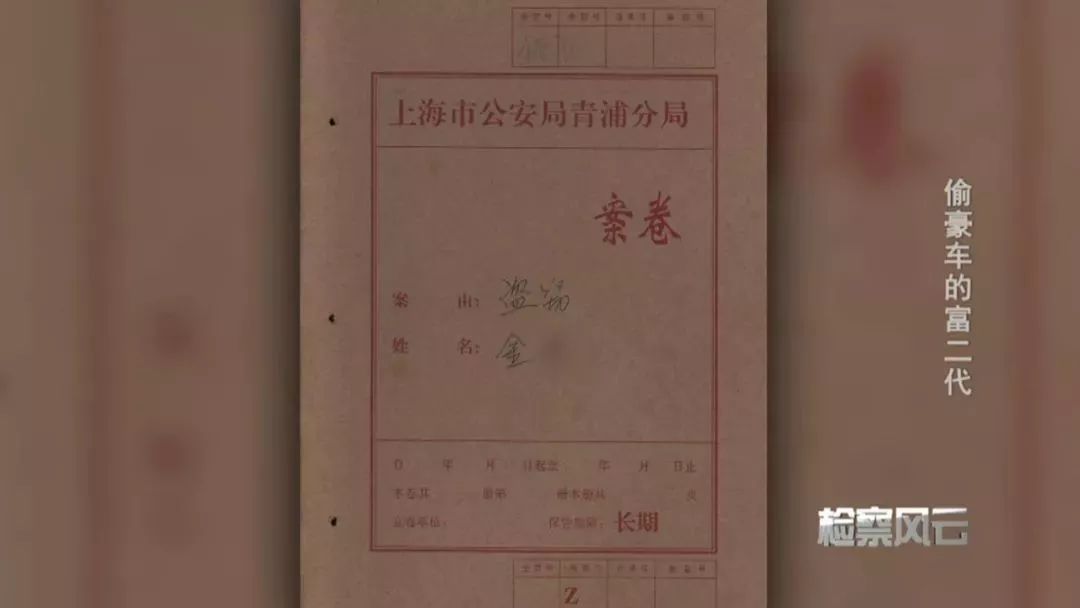 上海市公安局青浦分局
案卷
案 由：盗窃
姓 名：金
年 月 日起至 年 月 日止
本卷共 册第 册本册共 页
立卷单位： 保管期限：长期
Z
偷豪车的富二代
检察风云